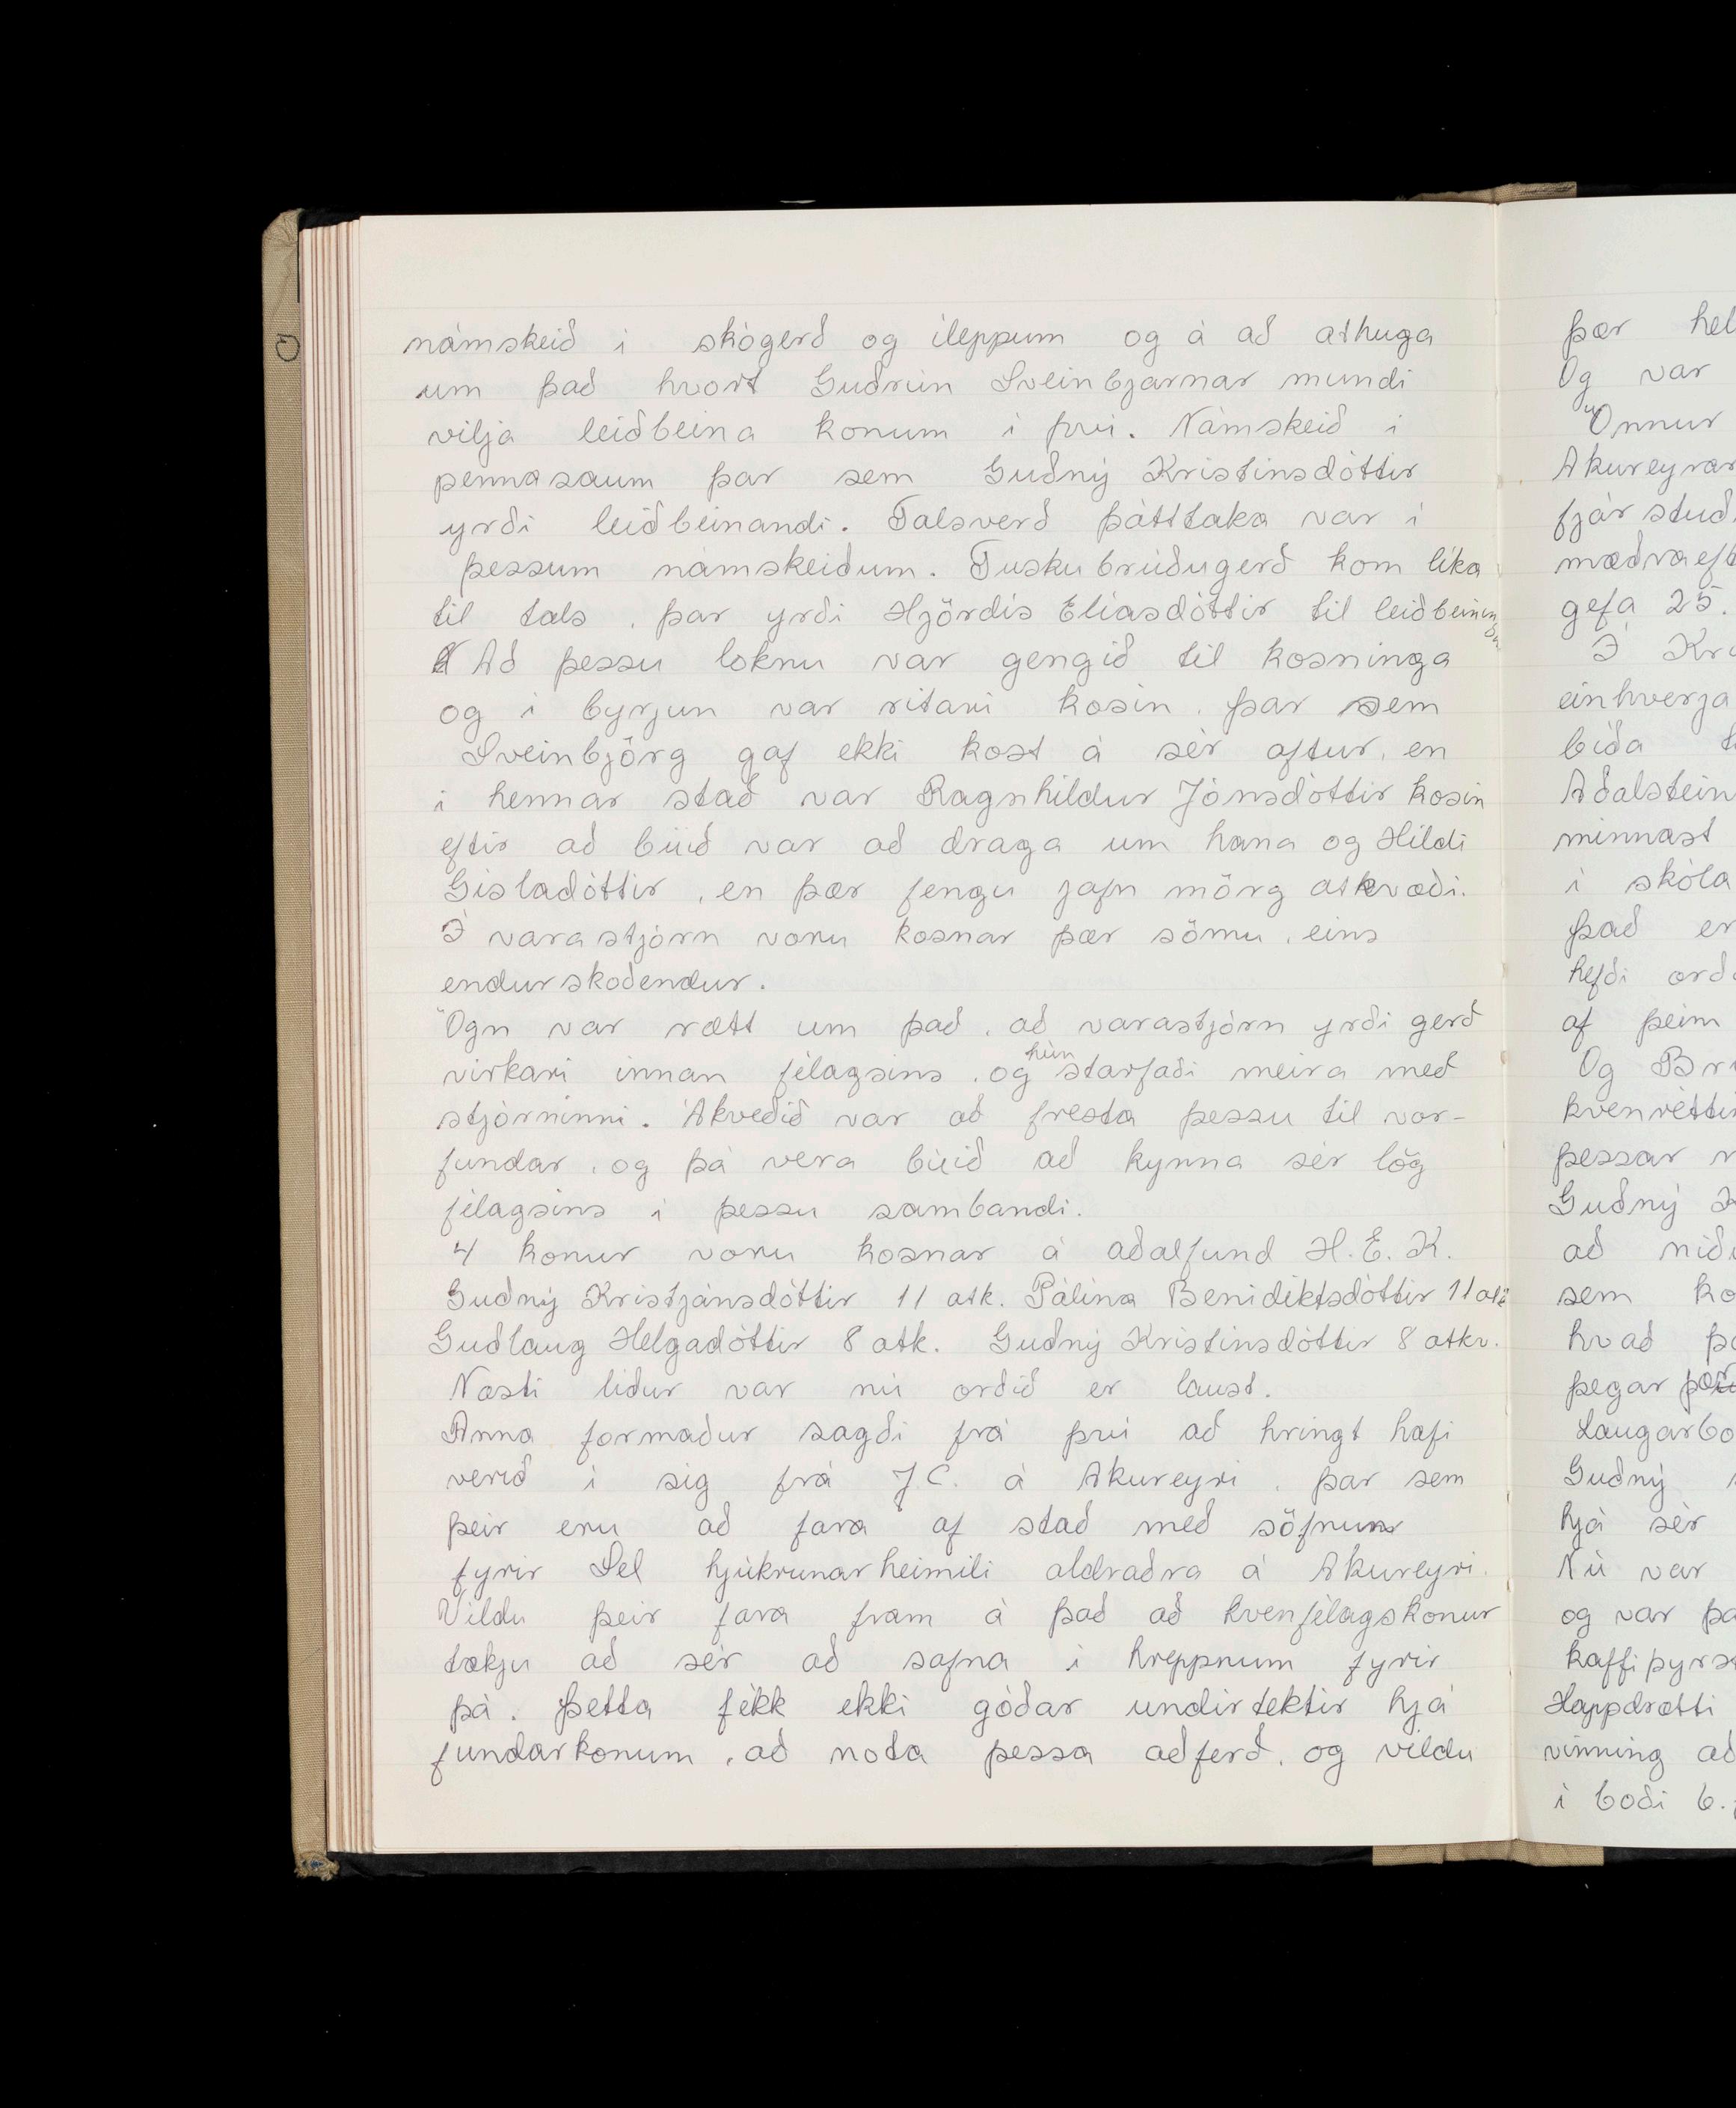 námskeið í skógerð og íleppum og á að athuga
um það hvort Guðrún Sveinbjarnar mundi
vilja leiðbeina konum í því. Námskeið í
pennasaum þar sem Guðný Kristinsdóttir
yrði leiðbeinandi. Talsverð þátttaka var í
þessum námskeiðum. Tuskubrúðugerð kom líka
til tals, þar yrði Hjördís Elíasdóttir til
Að þessu loknu var gengið til kosninga
og í byrjun var ritari kosin, þar sem
Sveinbjörg gaf ekki kost á sér aftur, en
í hennar stað var Ragnhildur Jónsdóttir kosin
eftir að búið var að draga um hana og Hildi
Gísladóttir, en þær fengu jafn mörg atkvæði.
Í varastjórn voru kosnar þær sömu, eins
endurskoðendur.
Ögn var rætt um það, að varastjórn yrði gerð
virkari innan félagsins, og hún starfaði meira með
stjórninni. Ákveðið var að fresta þessu til vor-
fundar, og þá vera búið að kynna sér lög
félagsins í þessu sambandi.
4 konur voru kosnar á aðalfund H.E.K.
Guðný Kristjánsdóttir 11 atk. Pálína Benidiktsdóttir 11 atk
Guðlaug Helgadóttir 8 atk. Guðný Kristinsdóttir 8 atkv.
Næsti liður var nú orðið er laust.
Anna formaður sagði frá því að hringt hafi
verið í sig frá J.C. á Akureyri, þar sem
þeir eru að fara af stað með söfnun
fyrir Sel hjúkrunarheimili aldraðra á Akureyri.
Vildu þeir fara fram á það að kvenfélagskonur
tækju að sér að safna í hreppnum fyrir
þá. Þetta fékk ekki góðar undirtektir hjá
fundarkonum, að nota þessa aðferð, og vildu
þær hel
Og var
Önnur
Akureyrar
fjár stuð
mæðraeft
gefa 25.
Í Kr
einhverja
bíða t
Aðalstein
minnast
í skóla
það er
hefði orð
af þeim
Og Br
kvenrétti
þessar
Guðný K
að nið
sem ko
hvað þ
þegar þær
Laugarbo
Guðný
hjá sér
Nú var
og var þa
kaffiþyrst
Happdrætti
vinning að
í boði 6.